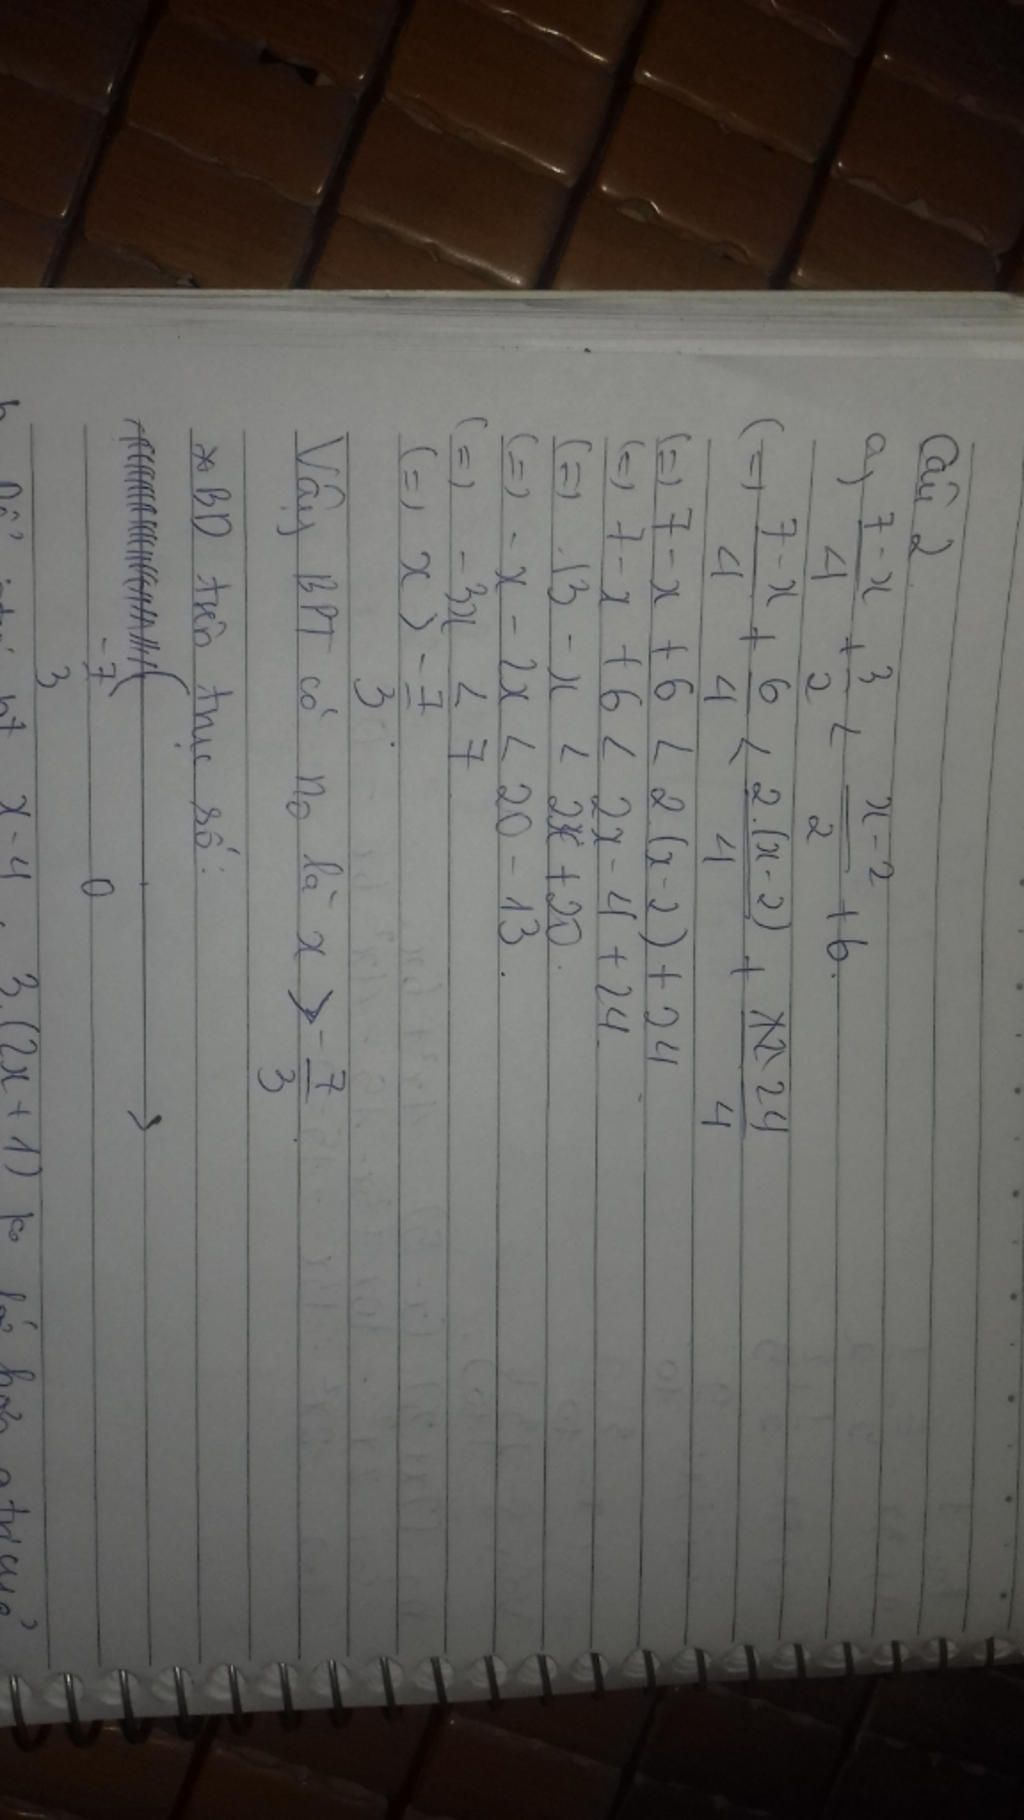 Câu 2
a, 7-x/4 + 3/2 < x-2/2 + 6.
(=) 7-x/4 + 6/4 < 2.(x-2)/4 + 24/4
(=) 7-x + 6 < 2(x-2) + 24
(=) 7-x + 6 < 2x-4 + 24
(=) 13 - x < 2x + 20.
(=) -x - 2x < 20 - 13.
(=) -3x < 7
(=) x > -7/3
Vậy BPT có no là x > -7/3
*BD trên trục số:
-7/3 0
b, Để x-4 3.(2x+1) ko lớn hơn